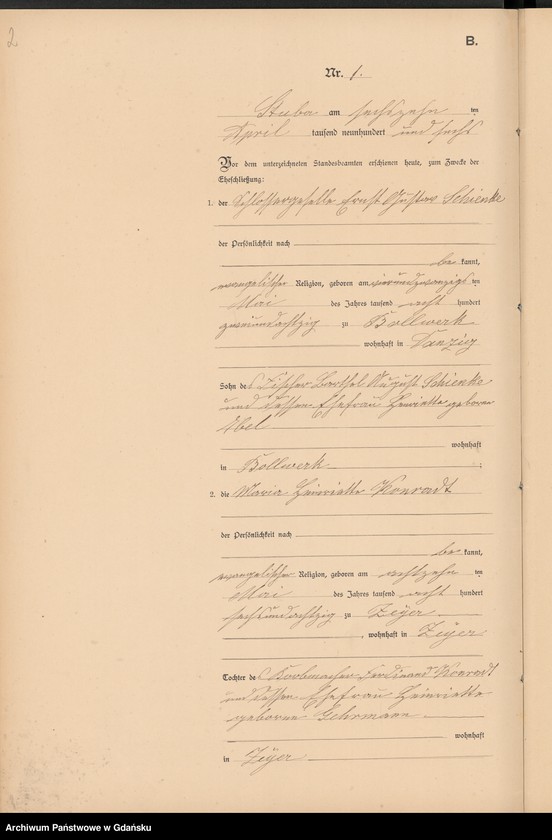 2
B.
Nr. 1.
Stuba am sechszehn ten
April tausend neunhundert und sechs
Vor dem unterzeichneten Standesbeamten erschienen heute, zum Zwecke der
Eheschließung:
1. der Schlossergeselle Ernst Gustav Schienke
der Persönlichkeit nach
be kannt,
evangelischer Religion, geboren am vierundzwanzigs ten
Mai des Jahres tausend acht hundert
zweiundachtzig zu Bollwerk
wohnhaft in Danzig
Sohn des Fischer Barthel August Schienke
und dessen Ehefrau Henriette geborene
Abel
wohnhaft
in Bollwerk ;
2. die Maria Henriette Konradt
der Persönlichkeit nach
be kannt,
evangelischer Religion, geboren am achtzehn ten
Mai des Jahres tausend acht hundert
sechsundachtzig zu Zeyer
, wohnhaft in Zeyer
Tochter des Korbmacher Ferdinand Konradt
und dessen Ehefrau Henriette
geborene Gehrmann
wohnhaft
in Zeyer
Archiwum Państwowe w Gdańsku